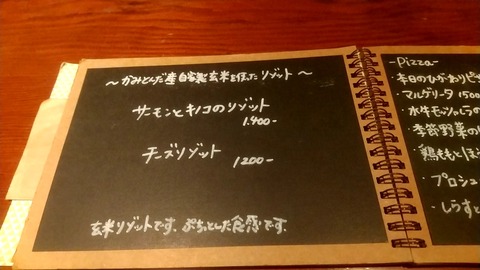 ～かみとんだ産自家製玄米を使ったリゾット～
サーモンとキノコのリゾット
1.400-
チーズリゾット 1200-
玄米リゾットです。ぷちっとした食感です。
-Pizza-
・本日のひがわりピ
・マルゲリータ 1500
・水牛モッツァレラの
・季節野菜の
・鶏ももとほ
・プロシュ
・しらすと